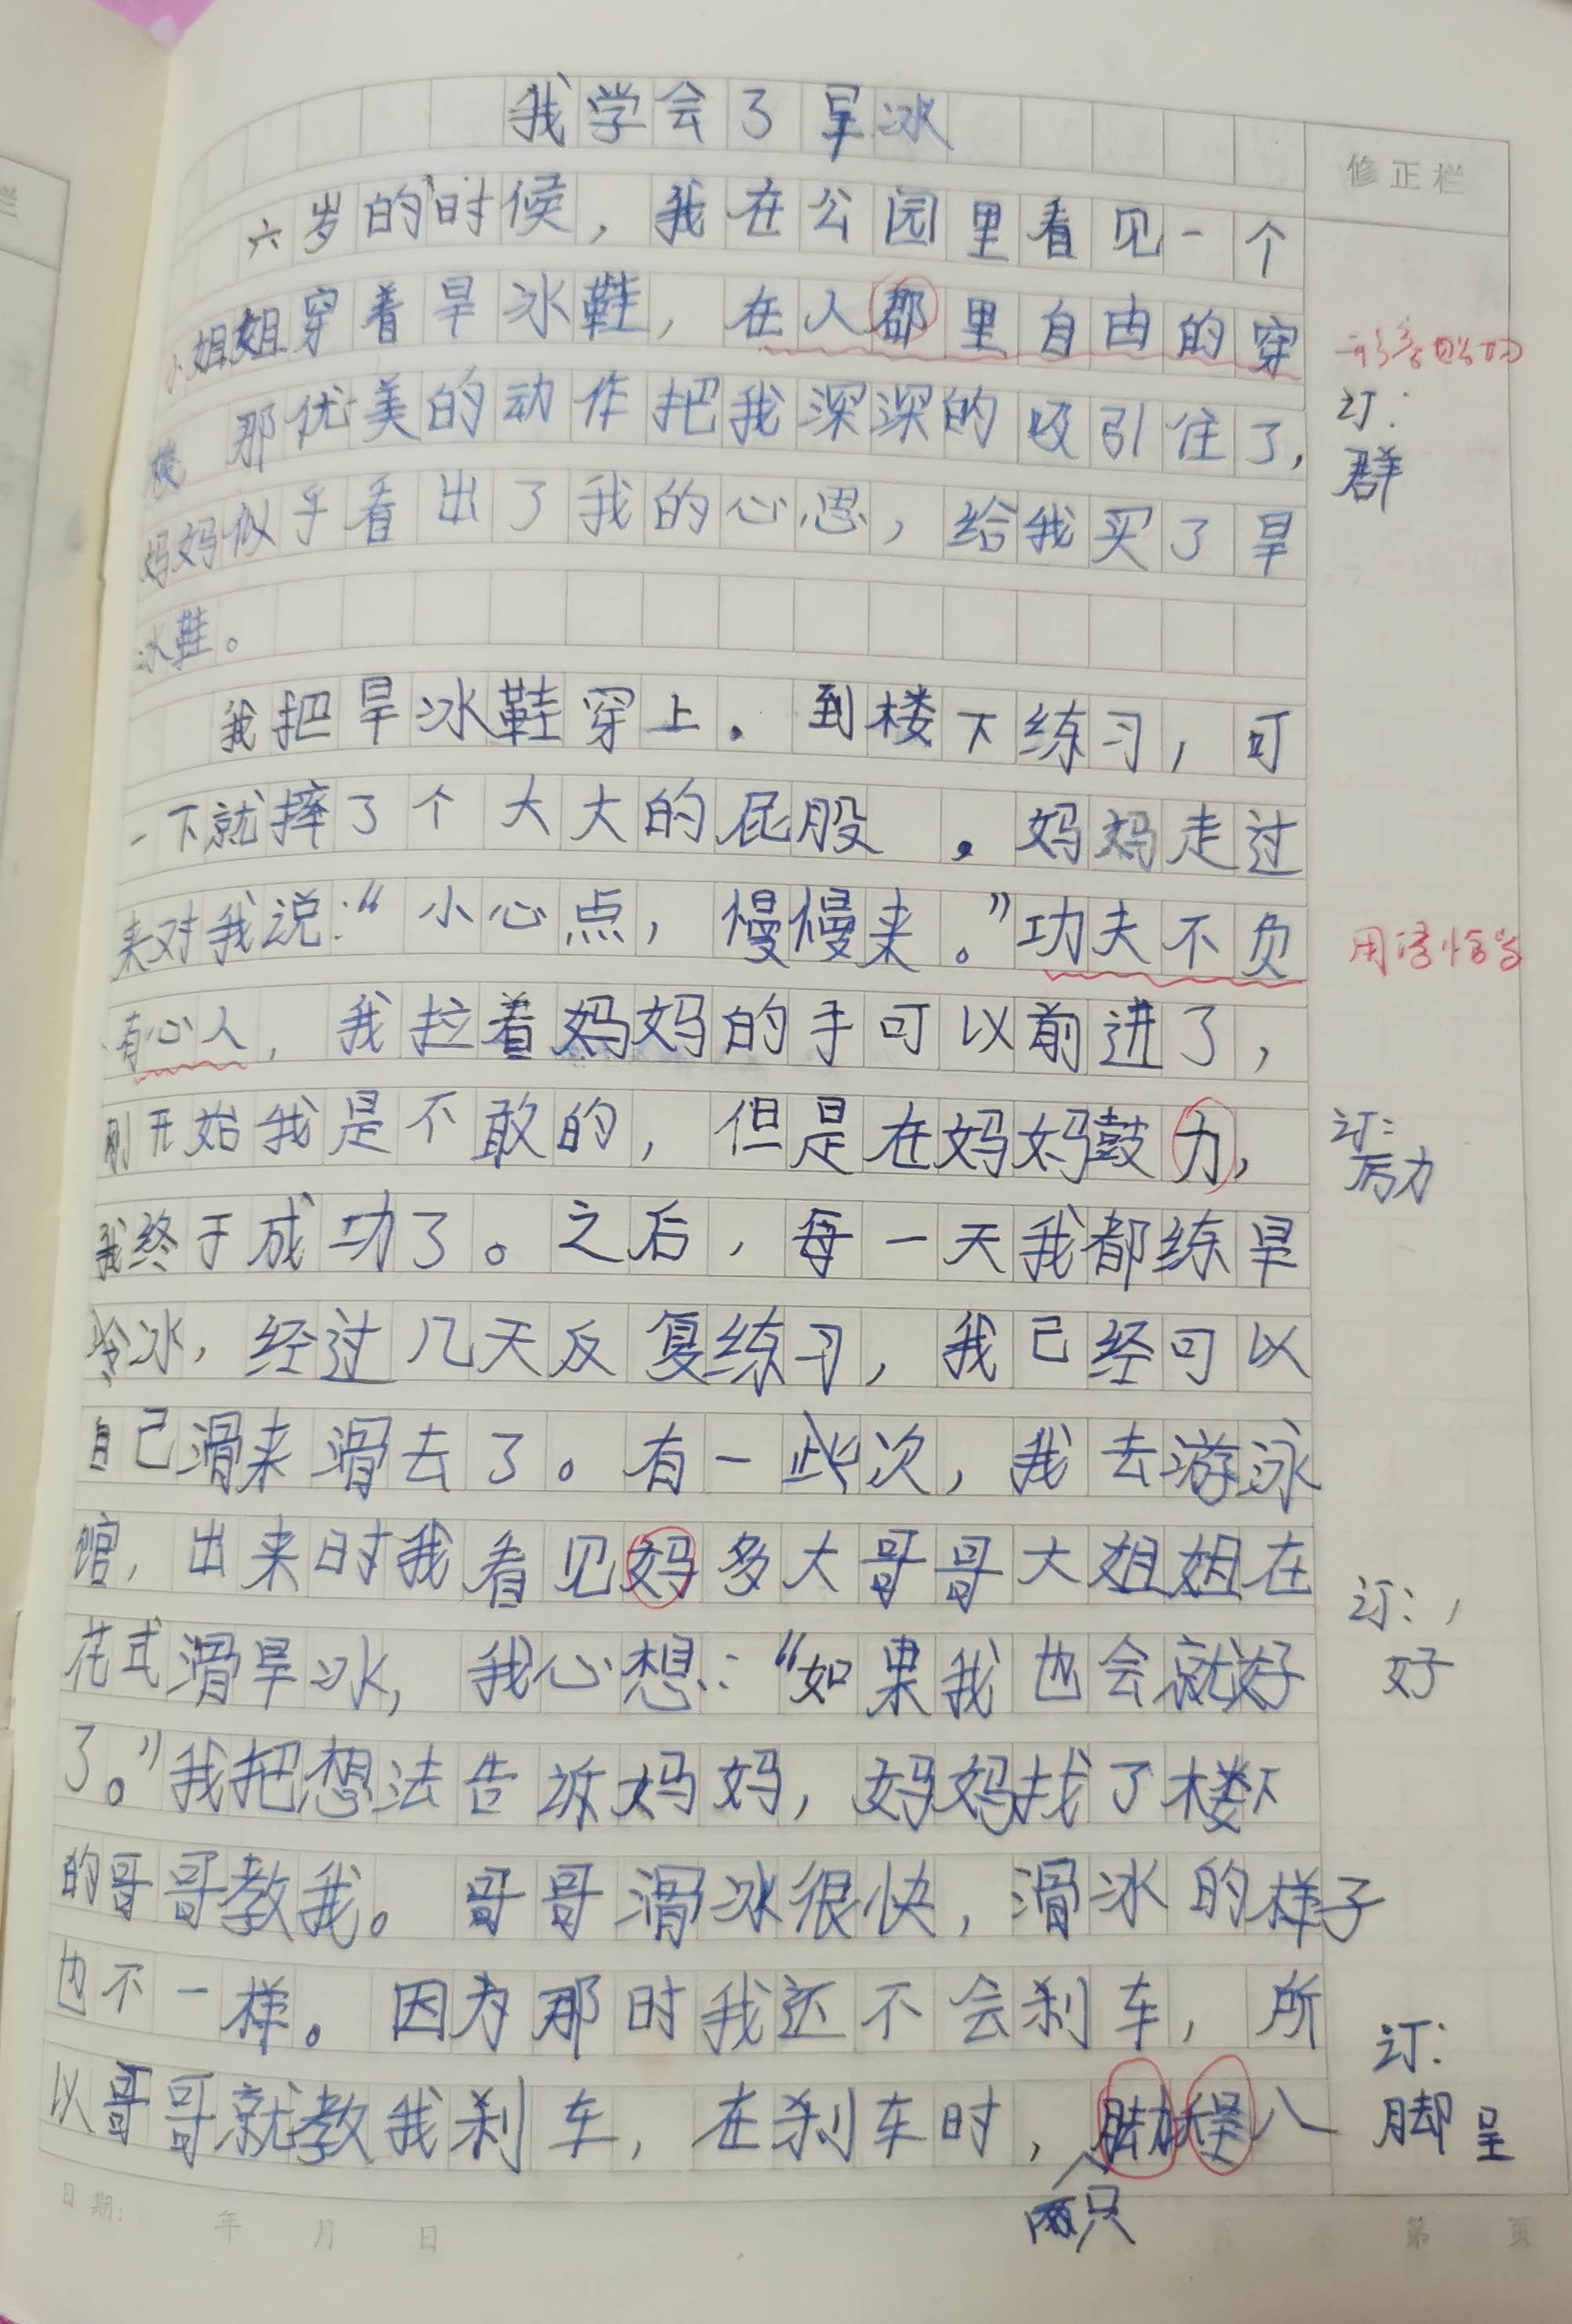 我学会了旱冰
修正栏
六岁的时候，我在公园里看见一个
小姐姐穿着旱冰鞋，在人郡里自由的穿
形容贴切
订：
梭 那优美的动作把我深深的吸引住了，
群
妈妈似乎看出了我的心思，给我买了旱
冰鞋。
我把旱冰鞋穿上．到楼下练习，可
一下就摔了个大大的屁股，妈妈走过
来对我说：“小心点，慢慢来。”功夫不负
用语恰当
有心人，我拉着妈妈的手可以前进了，
刚开始我是不敢的，但是在妈妈鼓力，
订：
励
我终于成功了。之后，每一天我都练旱
冰，经过几天反复练习，我已经可以
自己滑来滑去了。有一次，我去游泳
馆，出来时我看见妈多大哥哥大姐姐在
订：
好
花式滑旱冰，我心想：“如果我也会就好
了。”我把想法告诉妈妈，妈妈找了楼下
的哥哥教我。哥哥滑冰很快，滑冰的样子
也不一样。因为那时我还不会刹车，所
订：
以哥哥就教我刹车，在刹车时，脚程八
两只
脚 呈
日期： 年 月 日
第 页